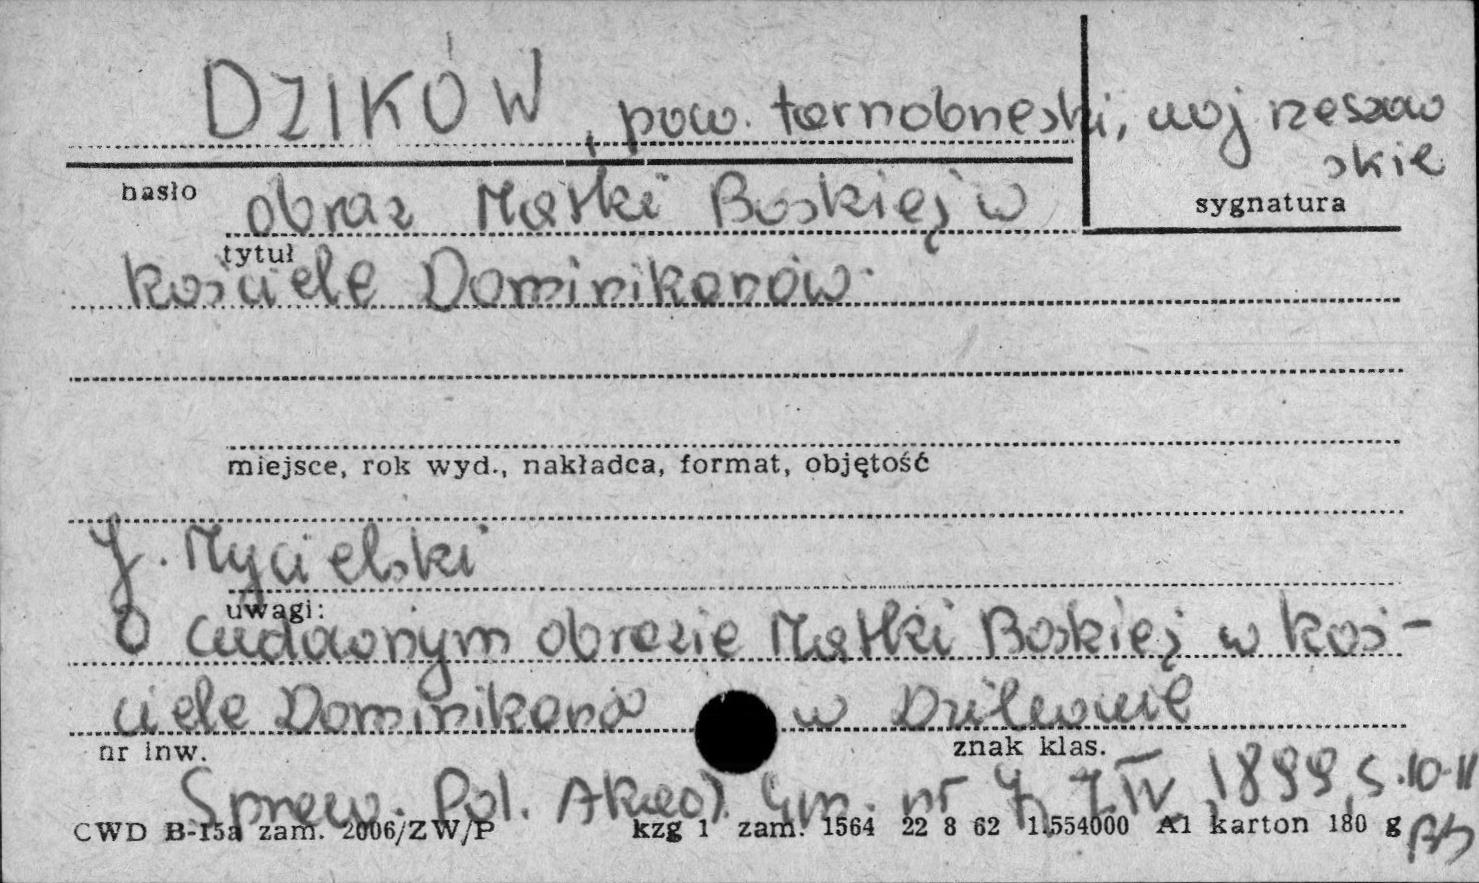 DZIKÓW, pow. tarnobrzeski, woj rzeszow
skie
hasło
sygnatura
obraz Matki Boskiej w
tytuł
kościele Dominikanów.
miejsce, rok wyd., nakładca, format, objętość
J. Mycielski
uwagi:
O cudownym obrazie Matki Boskiej w koś-
ciele Dominikanów w Dzikowie
nr inw.
znak klas.
Spraw. Pol. Akad. Um. nr 4, T. IV, 1899, s. 10-11
CWD B-15a zam. 2006/ZW/P kzg 1 zam. 1564 22 8 62 1.554000 A1 karton 180 g